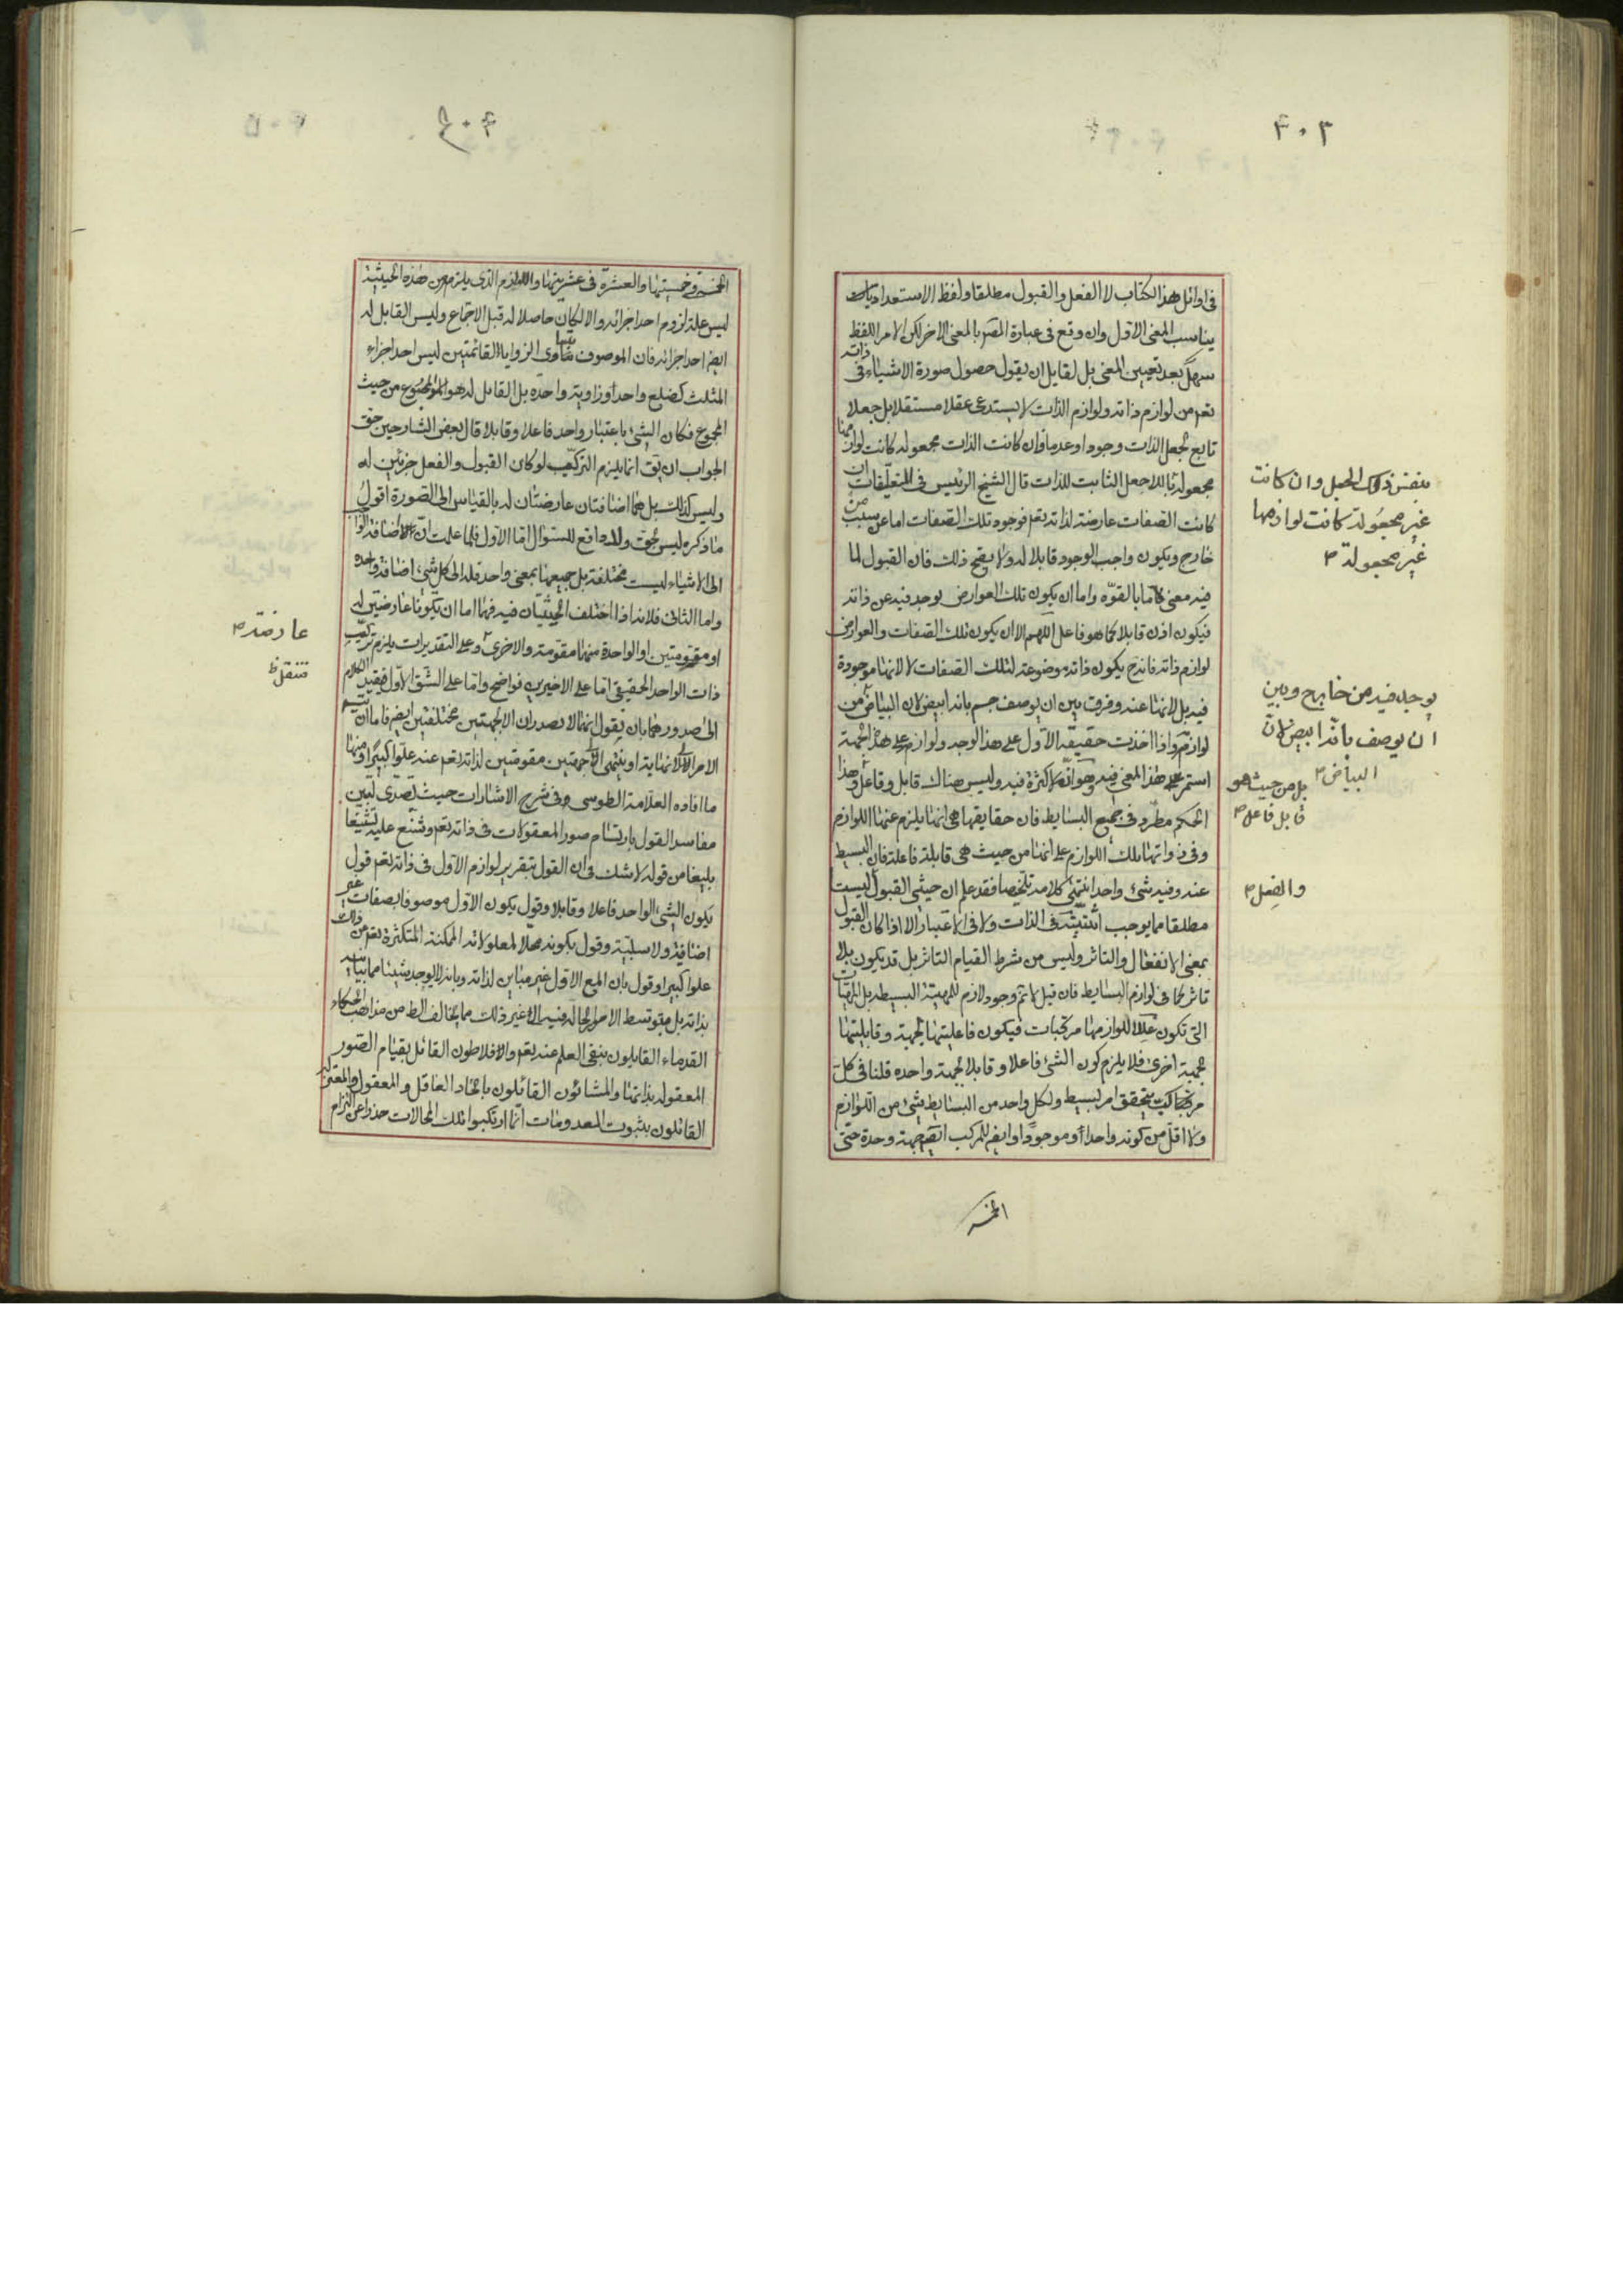 ٣٠٣
فى اوائل هذا الكتاب لا الفعل والقبول مطلقا ولفظ الاستعداد
يناسب المعنى الاول وان وقع فى عبارة المصر بالمعنى الاخر لكن الامر اللفظ
سهل بعد تعيين المعنى بل لقايل ان يقول حصول صورة الاشياء فى ذاته
تعم من لوازم ذاته ولوازم الذات لا يستدعى عقلا مستقلا بل جعلا
تابع لجعل الذات وجودا وعدما فان كانت الذات مجعولة كانت لوازمها
مجعولة باللاجعل الثابت للذات قال الشيخ الرئيس فى التعليقات ان
كانت الصفات عارضة لذاته تعم فوجود تلك الصفات اما عن سبب من
خارج ويكون واجب الوجود قابلا له ولا يصح ذلك فان القبول لما
فيه معنى ما بالقوة واما ان يكون تلك العوارض يوجد فيه عن ذاته
فيكون اذن قابلا كما هو فاعل اللهم الا ان يكون تلك الصفات والعوارض
لوازم ذاته فانه ح يكون ذاته موضوعة لتلك الصفات لا لانها موجودة
فيه بل لانها عنه وفرق بين ان يوصف جسم بانه ابيض لان البياض من
لوازمه واذا اخذت حقيقة الاول على هذا الوجه ولوازمه على هذه الجهة
استمر هذا المعنى فيه وهو انه لا كثرة فيه وليس هناك قابل وفاعل وهذا
الحكم مطرد فى جميع البسايط فان حقايقها هى انها يلزم عنها اللوازم
وفى ذواتها تلك اللوازم على انها من حيث هى قابلة فاعلة فان البسيط
عنه وفيه شئ واحد انتهى كلامه تلخيصا فقد علم ان حيثى القبول ليست
مطلقا مما يوجب اثنينية فى الذات ولا فى الاعتبار الا اذا كان القبول
بمعنى الانفعال والتاثر وليس من شرط القيام التاثر بل قد يكون بلا
تاثر كما فى لوازم البسايط فان قيل لا تم وجود لازم للمهية البسيطة بل المهيات
التى تكون عللا للوازمها مركبات فيكون فاعليتها لجهة وقابليتها
لجهة اخرى فلا يلزم كون الشئ فاعلا وقابلا لجهة واحده قلنا فى كل
مركب يتحقق امر بسيط ولكل واحد من البسايط شئ من اللوازم
ولا اقل من كونه واحدا او موجودا وايضم للمركب ايضم جهة وحدة حتى
بنفس ذلك الجعل وان كانت
غير مجعولة كانت لوازمها
غير مجعولة م
يوجد فيه من خارج وبين
ان يوصف بانه ابيض لان
البياض م
بل من حيث هو
قابل فاعل م
والفعل م
الخمسة
٣٠٤
الخمسة فى خمستها والعشرة فى عشريتها واللازم الذى يلزم من هذه الحيثية
ليس علة لزومه احد اجزائه والا لكان حاصلا له قبل الاجتماع وليس القابل له
ايضم احد اجزائه فان الموصوف بتساوى الزوايا القائمتين ليس احد اجزاء
المثلث كضلع واحد او زاوية واحده بل القابل له هو المجموع من حيث
المجموع فكان الشئ باعتبار واحد فاعلا وقابلا قال بعض الشارحين حق
الجواب ان يق انما يلزم التركيب لو كان القبول والفعل جزئين له
وليس كذلك بل هما اضافتان عارضتان له بالقياس الى الصورة اقول
ما ذكره ليس بحق ولا دافع للسئوال اما الاول فلما علمت ان اضافة الواجب
الى الاشياء ليست مختلفة بل جميعها بمعنى واحد فله الى كل شئ اضافة واحده
واما الثانى فلانه اذا اختلف الحيثيتان فيه فهما اما ان يكونا عارضتين له
او مقومتين او الواحدة منهما مقومة والاخرى وعلى التقديرات يلزم تركيب
ذات الواحد الحقيقى اما على الاخيرين فواضح واما على الشق الاول فيفيد الكلام
الى صدورهما بان يقول انهما لا يصدران الا لجهتين مختلفتين ايضم فاما ان يتسم
الامر الى لا نهاية او ينتهى الى جهتين مقومتين لذاته تعم عنه علوا كبيرا ومنها
ما افاده العلامة الطوسى فى شرح الاشارات حيث تصدى لبين
مفاسد القول بارتسام صور المعقولات فى ذاته تعم وشنع عليه تشنيعا
بليغا من قوله لا شك فى ان القول بتقرير لوازم الاول فى ذاته تعم قول
بكون الشئ الواحد فاعلا وقابلا وقول بكون الاول موصوفا بصفات غير
اضافية ولا سلبية وقول بكونه محلا لمعلولاته الممكنة المتكثرة تعم عن ذلك
علوا كبيرا وقول بان المع الاول غير مباين لذاته وبانه لا يوجد شيئا مما يباينه
بذاته بل بتوسط الامور الحالة فيه الى غير ذلك مما يخالف الظ من مذاهب الحكماء
القدماء القايلون بنفى العلم عنه تعم والافلاطون القائل بقيام الصور
المعقولة بذاتها والمشائون القائلون باتحاد العاقل والمعقول والمعتزلة
القائلون بثبوت المعدومات انما ارتكبوا تلك المحالات حذرا عن التزام
عارضة م
فننقل ظ